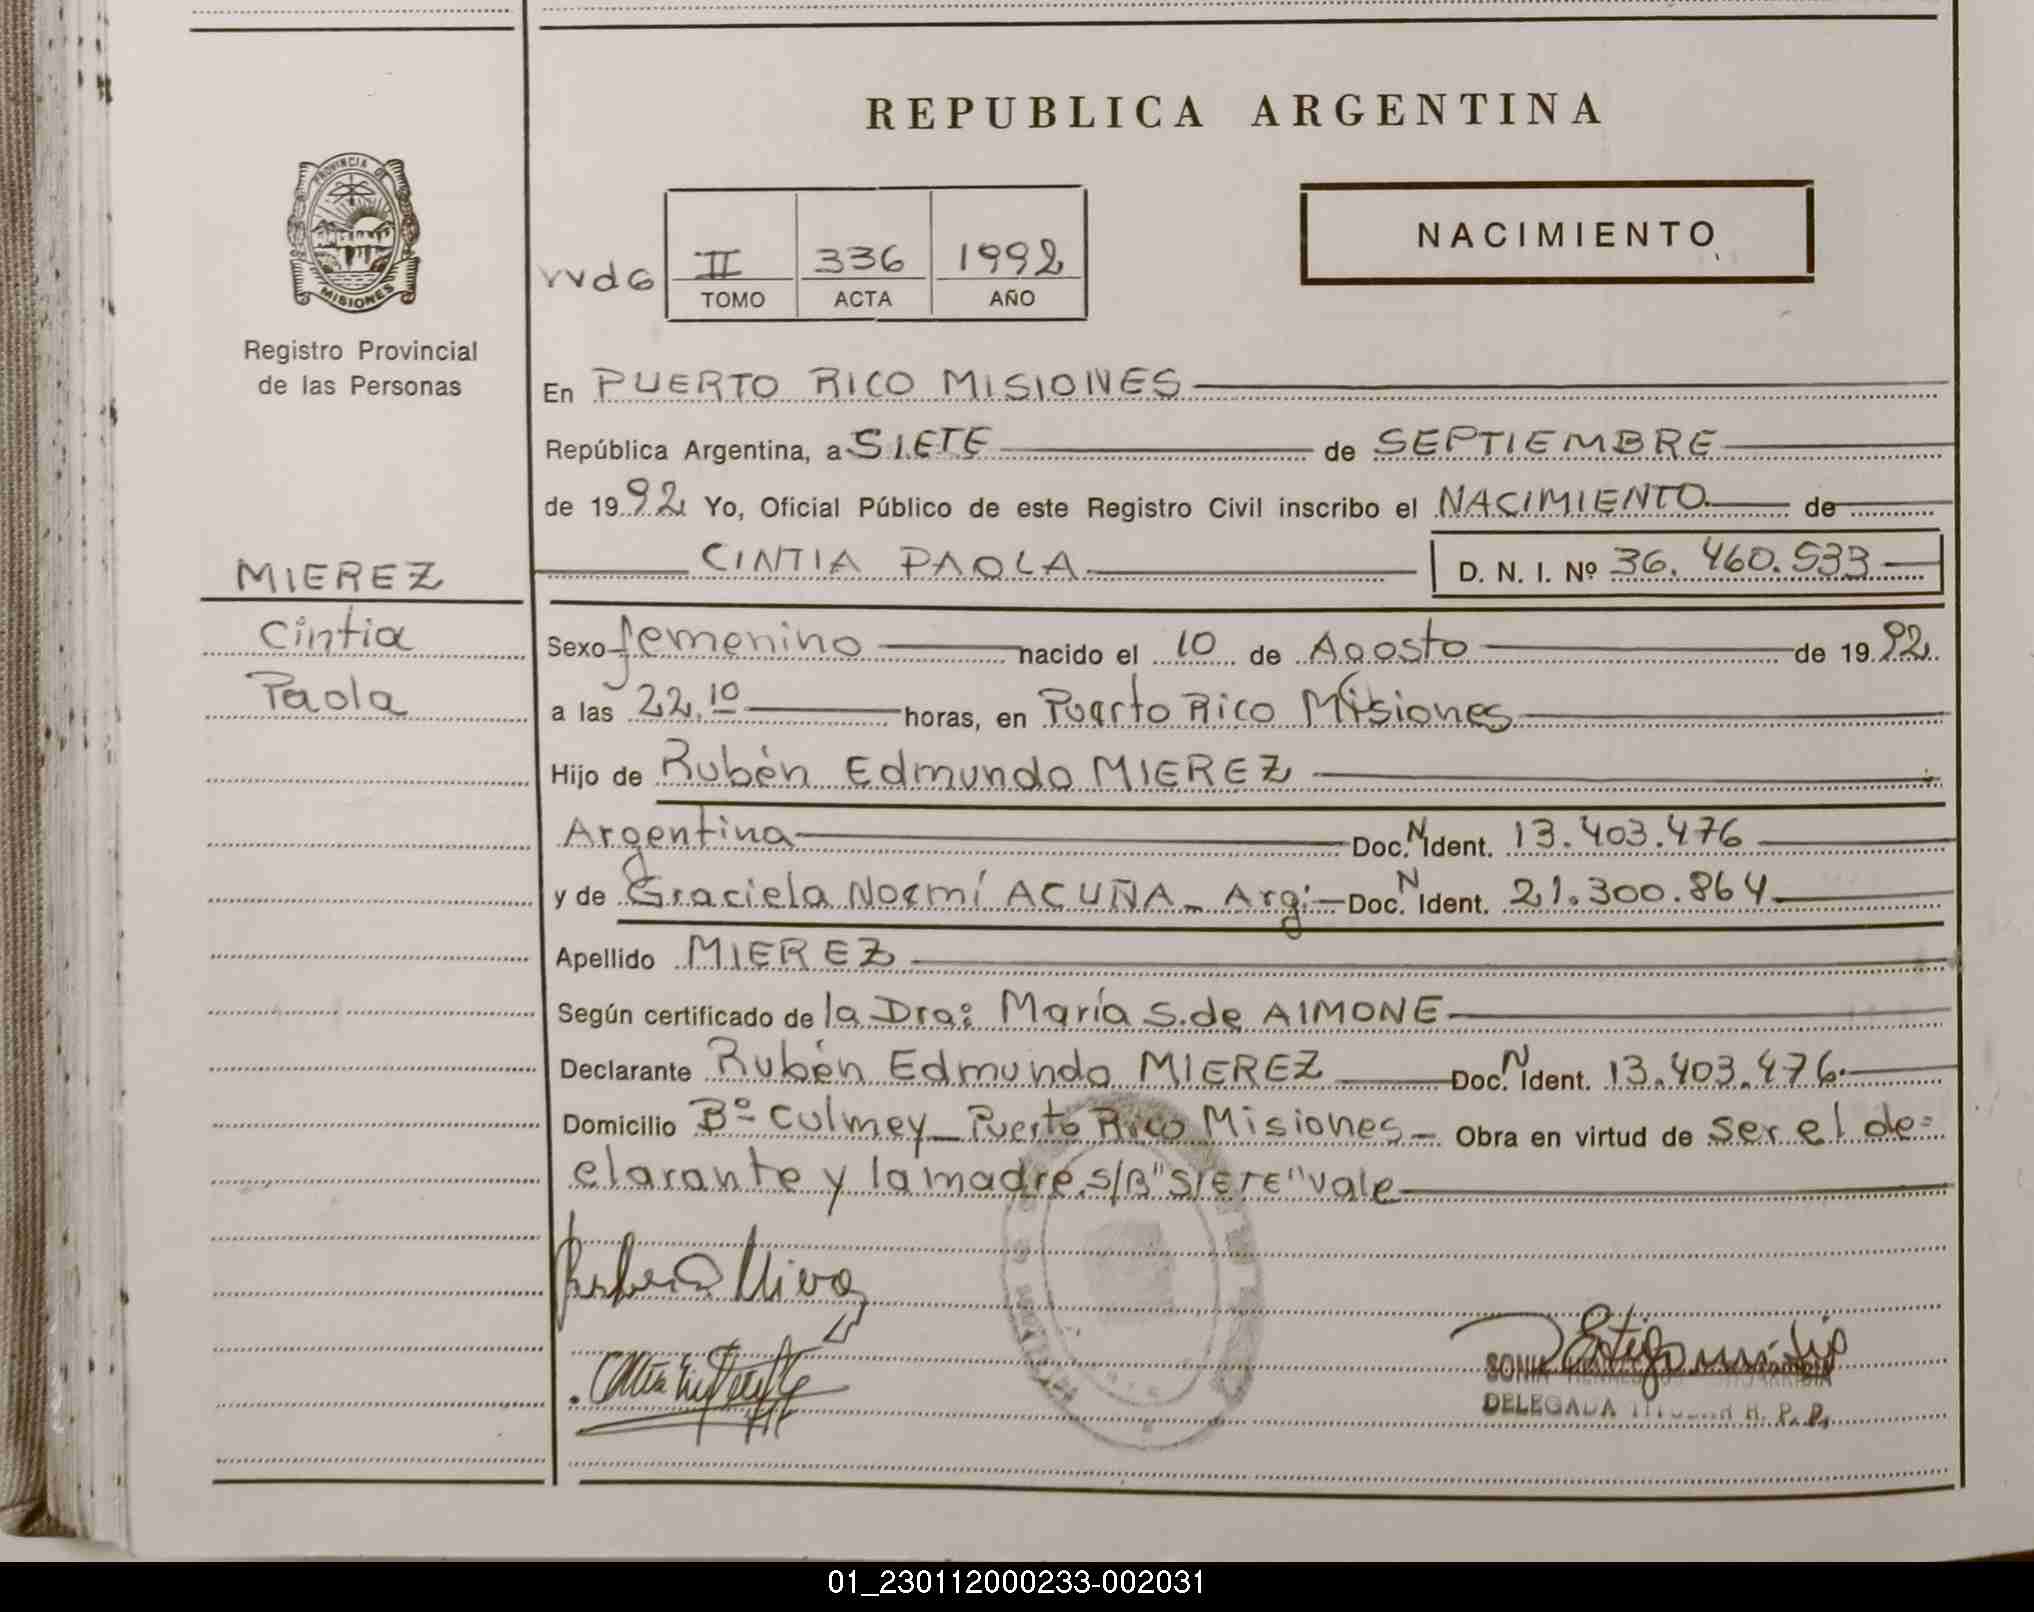 REPUBLICA ARGENTINA
PROVINCIA DE
MISIONES
Registro Provincial
de las Personas
NACIMIENTO
II 336 1992
TOMO ACTA AÑO
En PUERTO RICO MISIONES
República Argentina, a SIETE de SEPTIEMBRE
de 1992 Yo, Oficial Público de este Registro Civil inscribo el NACIMIENTO de
CINTIA PAOLA D. N. I. Nº 36.460.533
MIEREZ
Cintia
Paola
Sexo femenino nacido el 10 de Agosto de 1992.
a las 22.10 horas, en Puerto Rico Misiones
Hijo de Rubén Edmundo MIEREZ
Argentina Doc. N Ident. 13.403.476
y de Graciela Noemí ACUÑA - Arg: Doc. N Ident. 21.300.864
Apellido MIEREZ
Según certificado de la Dra: María S. de AIMONE
Declarante Rubén Edmundo MIEREZ Doc. N Ident. 13.403.476.
Domicilio Bº Culmey - Puerto Rico Misiones - Obra en virtud de ser el de=
clarante y la madre. S/B "SIETE" Vale
SONIA
DELEGADA R. P. P.
01_230112000233-002031